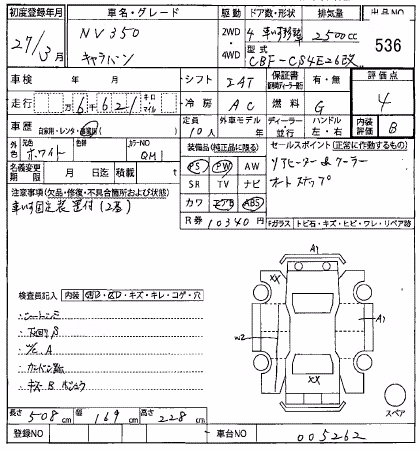 初度登録年月 車名・グレード 駆動 ドア数・形状 排気量 出品NO
27/3月 NV350 キャラバン 2WD・4WD 4 車いす移動 2500cc 536
型式 CBF-CS4E26改
車検 年 月 シフト IAT 保証書 有・無 評価点
走行 万6千621 キロ マイル 冷房 AC 燃料 G 4
車歴 自家用・レンタ 定員 10人 外車モデル 年 ディーラー・並行 ハンドル 左・右 内装評価 B
外色 元色 ホワイト カラーNO QM1
装備品(純正品に限る) セールスポイント(正常に作動するもの)
名義変更期限 月 日迄 積載 t
PS PW AW リアヒーター&クーラー
SR TV ナビ オートステップ
注意事項(欠品・修復・不具合箇所および状態)
車いす固定装置付(2基)
カワ エアB ABS
R券 10340円 Fガラス トビ石・キズ・ヒビ・ワレ・リペア跡
検査員記入 内装 ・キズ・キレ・コゲ・穴
A1
XX
A1
W2
XX
スペア
長さ 508cm 幅 169cm 高さ 228cm
登録NO 車台NO 005262